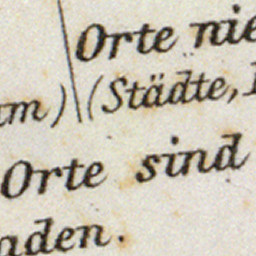 Orte nie
um) (Städte,
Orte sind
aden.